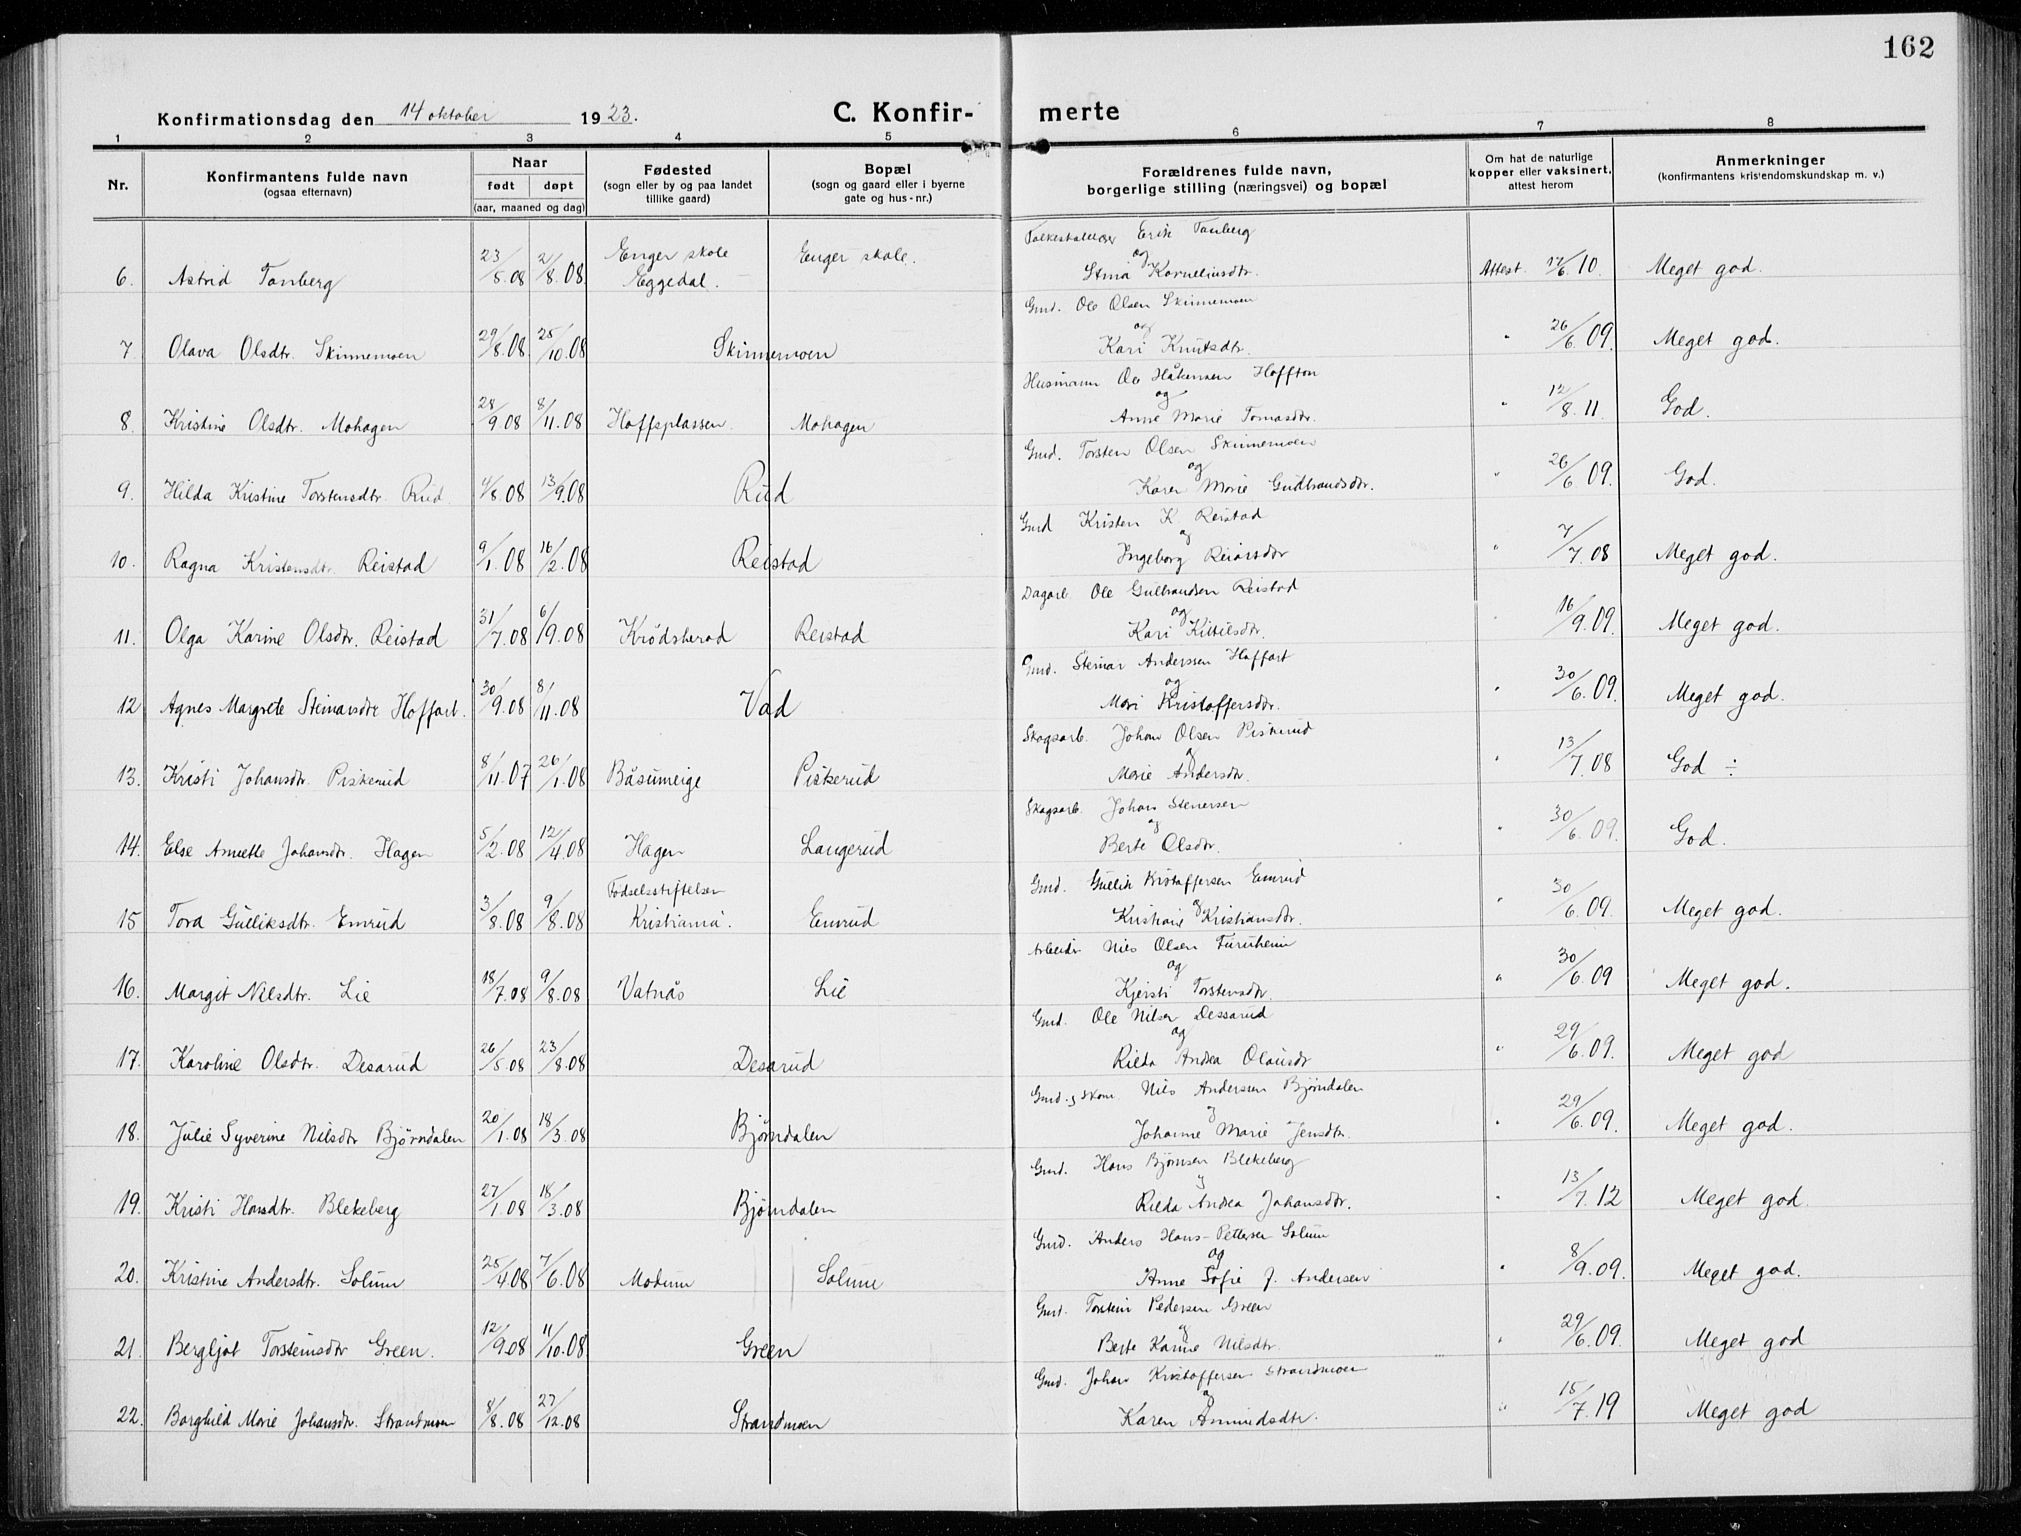 162
Konfirmationsdag den 14 oktober 1923.
C. Konfir- merte
1 2 3 4 5 6 7 8
Nr.
Konfirmantens fulde navn
(ogsaa efternavn)
Naar
født døpt
(aar, maaned og dag)
Fødested
(sogn eller by og paa landet
tillike gaard)
Bopæl
(sogn og gaard eller i byerne
gate og hus-nr.)
Forældrenes fulde navn,
borgerlige stilling (næringsvei) og bopæl
Om hat de naturlige
kopper eller vaksinert,
attest herom
Anmerkninger
(konfirmantens kris'endomskundskap m. v.)
6. Astrid Tanberg 23/5.08 2/8.08 Enger skole Eggedal. Enger skole. Erik Tanberg og Stina Korneliusdtr. Attest. 17/6.10. Meget god.
7. Olava Olsdtr. Skinnemoen 29/8.08. 25/10.08 Skinnemoen Gmd. Ole Olsen Skinnemoen og Kari Knutsdtr. " 26/6.09. Meget god.
8. Kristine Olsdtr. Mohagen 28/9.08 8/11.08 Hoffsplassen. Mohagen Husmann Ole Håkensen Hoffton og Anne Marie Tomasdtr. " 12/8.11. God.
9. Hilda Kristine Torstensdtr. Rud. 4/8.08 13/9.08 Rud Gmd. Torsten Olsen Skinnemoen og Karen Marie Gudbrandsdtr. " 26/6.09. God.
10. Ragna Kristensdtr. Reistad 9/1.08 16/2.08 Reistad Gmd Kristen K. Reistad og Ingeborg Reiarsdtr " 7/7.08 Meget god.
11. Olga Karine Olsdtr. Reistad 31/7.08 6/9.08 Krødsherad Reistad Dagarb. Ole Gulbrandsen Reistad og Kari Kittilsdtr. " 16/9.09. Meget god.
12 Agnes Margrete Steinarsdtr Hoffart. 30/9.08 8/11.08 Vad Gmd. Steinar Anderssen Hoffart og Mari Kristoffersdtr. " 30/6.09. Meget god.
13. Kristi Johansdtr. Piskerud 8/11.07 26/1.08 Båsumeige Piskerud Skogsarb. Johan Olsen Piskerud og Marie Andersdtr. " 13/7.08 God ÷
14. Else Anette Johansdtr. Hagen 5/2.08 12/4.08 Hagen Langerud Skogsarb. Johan Stenersen og Berte Olsdtr. " 30/6.09. God.
15 Tora Gulliksdtr. Emrud 3/8.08 9/8.08 Fødselsstiftelsen Kristiania. Emrud Gmd. Gullik Kristoffersen Emrud og Kristiane Kristiansdtr. " 30/6.09. Meget god.
16. Margit Nilsdtr. Lie 18/7.08 9/8.08 Vatnås Lie Arbeider Nils Olsen Furuheim og Kjersti Torstensdtr. " 30/6.09 Meget god.
17. Karoline Olsdtr. Desarud 26/5.08 23/8.08 Desarud Gmd. Ole Nilsen Dessarud og Rilda Andea Olausdtr " 29/6.09. Meget god
18. Julie Syverine Nilsdtr Bjørndalen 20/1.08 18/3.08 Bjørndalen Gmd. og skom. Nils Andersen Bjørndalen og Johanne Marie Jensdtr. " 29/6.09. Meget god.
19. Kristi Hansdtr. Blekeberg 27/1.08 18/3.08 Bjørndalen Gmd. Hans Bjørnsen Blekeberg og Rilda Andea Johansdtr. " 13/7.12 Meget god.
20. Kristine Andersdtr. Solum 25/4.08 7/6.08 Modum Solum Gmd. Anders Hans-Pettersen Solum og Anne Sofie J. Andersen " 8/9.09. Meget god.
21. Bergljot Torsteinsdtr Green. 12/9.08 11/10.08 Green Gmd. Torstein Pedersen Green og Berte Karine Nilsdtr. " 29/6.09. Meget god
22. Borghild Marie Johansdtr. Strandmoen 8/8.08 27/12.08 Strandmoen Gmd. Johan Kristoffersen Strandmoen og Karen Amundsdtr. " 15/7.19 Meget god